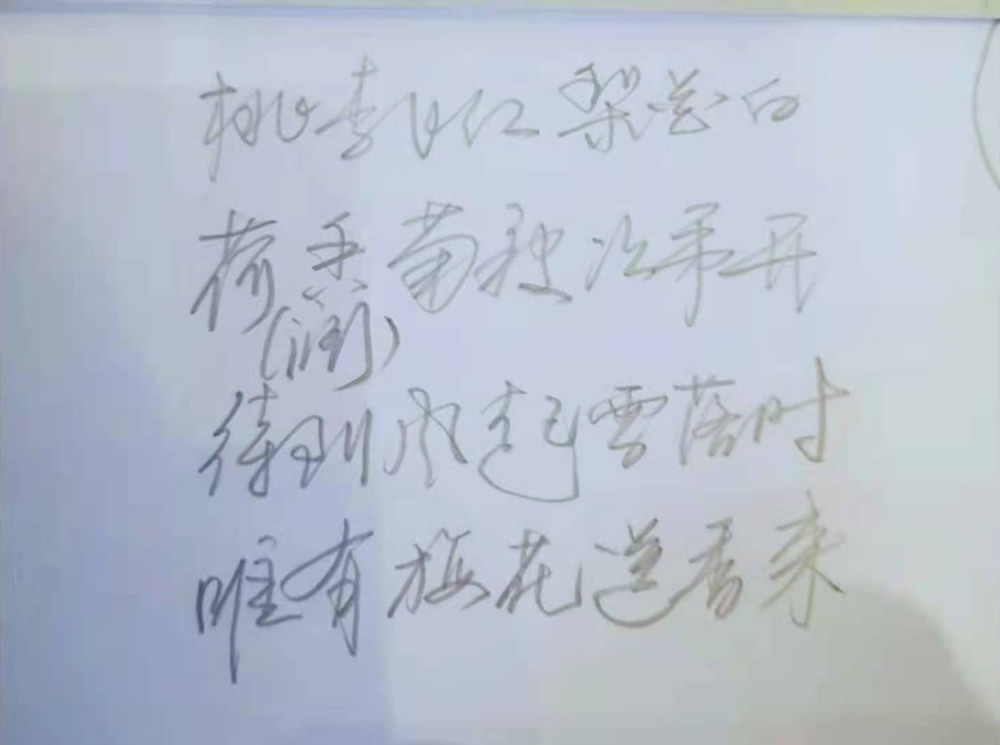 桃李日红梨花白
荷香菊秧次第开
(润)
待到风起雪落时
唯有梅花送香来